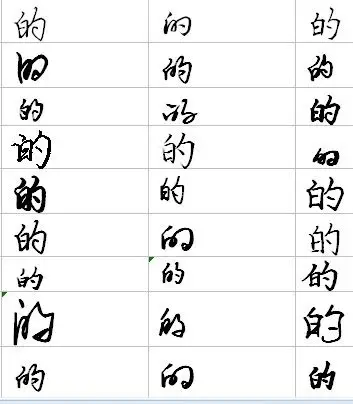 的 的 的
的 的 的
的 的 的
的 的 的
的 的 的
的 的 的
的 的 的
的 的 的
的 的 的